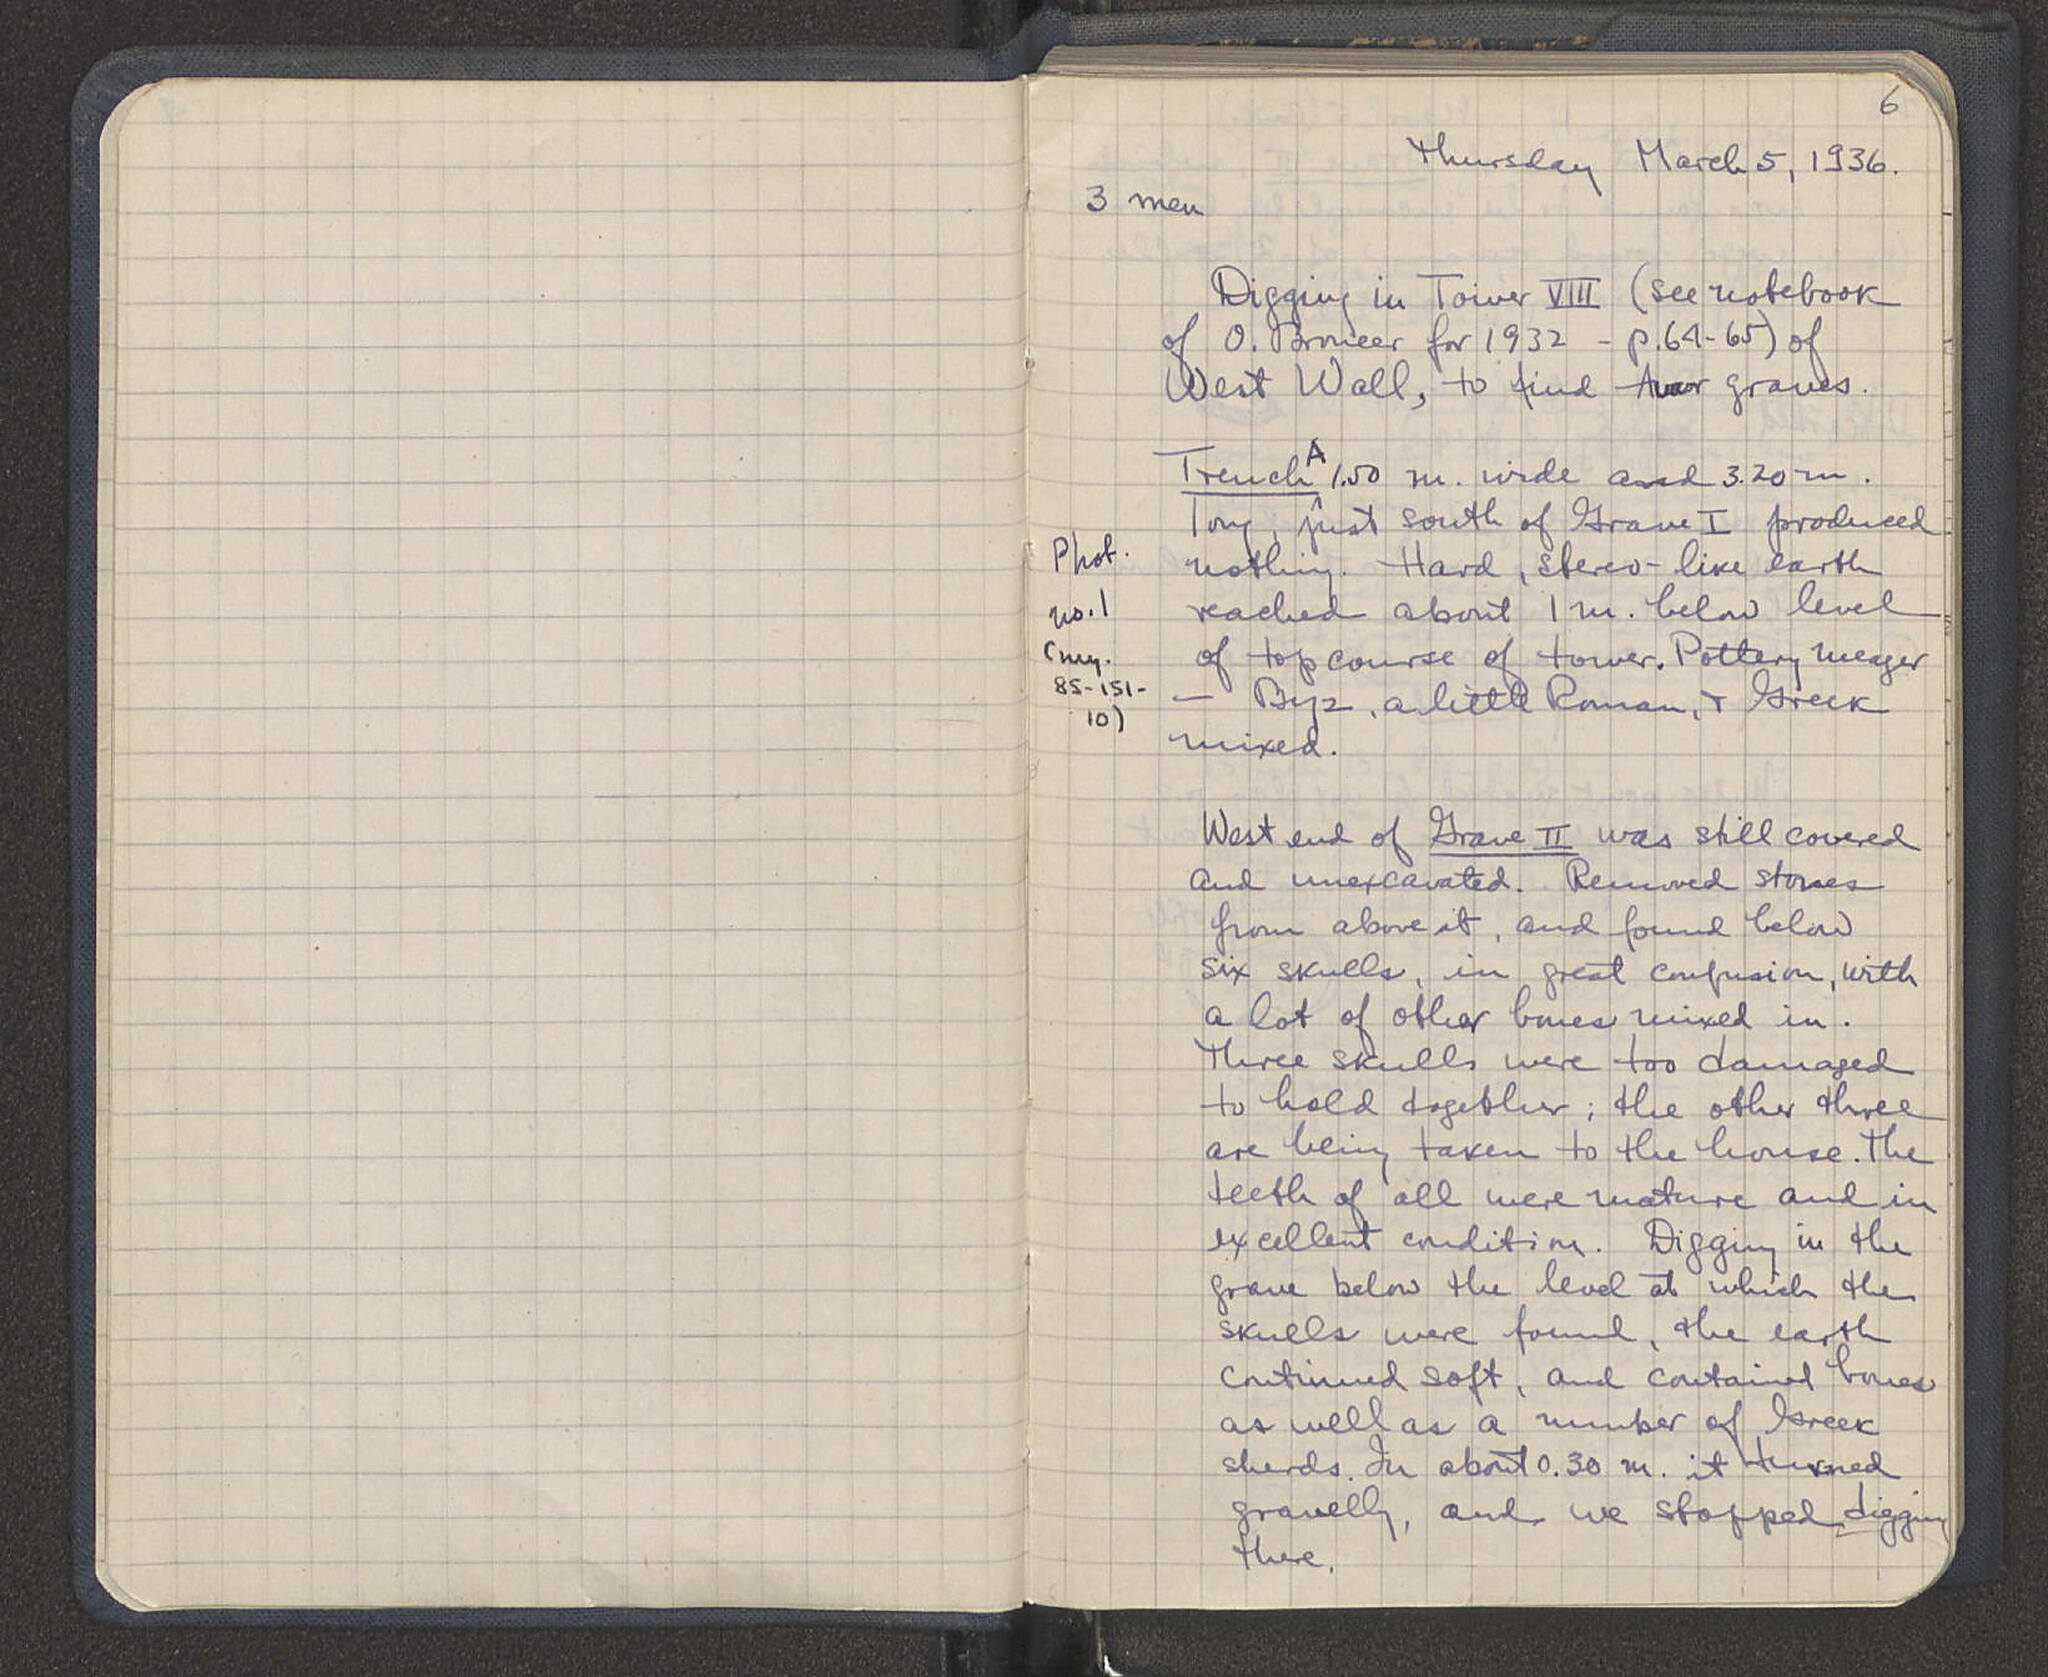 6
Thursday March 5, 1936.
3 men
Digging in Tower VIII (see notebook
of O. Broneer for 1932 - p.64-65) of
West Wall, to find Avar graves.
Trench A 1.50 m. wide and 3.20 m.
long, just south of Grave I produced
nothing. Hard, stereo-like earth
reached about 1 m. below level
of top course of tower. Pottery meager
— Byz, a little Roman, & Greek
mixed.
Phot.
no. 1
(neg.
85-151-
10)
West end of Grave II was still covered
and unexcavated. Removed stones
from above it, and found below
six skulls, in great confusion, with
a lot of other bones mixed in.
Three skulls were too damaged
to hold together; the other three
are being taken to the house. The
teeth of all were mature and in
excellent condition. Digging in the
grave below the level at which the
skulls were found, the earth
continued soft, and contained bones
as well as a number of Greek
sherds. In about 0.30 m. it turned
gravelly, and we stopped digging
there.